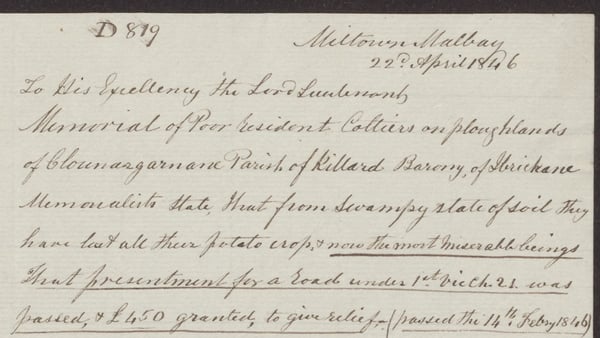 D 819
Miltown Malbay
22d. April 1846
To His Excellency the Lord Lieutenant,
Memorial of Poor resident Cottiers on ploughlands
of Clounagarnane Parish of Killard Barony, of Ibrickane
Memorialists State, that from Swampy state of soil they
have lost all their potato crop, & now the most miserable beings
That presentment for a Road under 1st. Vic Ch. 21 was
passed, & £450 granted, to give relief - (passed the 14th. Febry 1846)